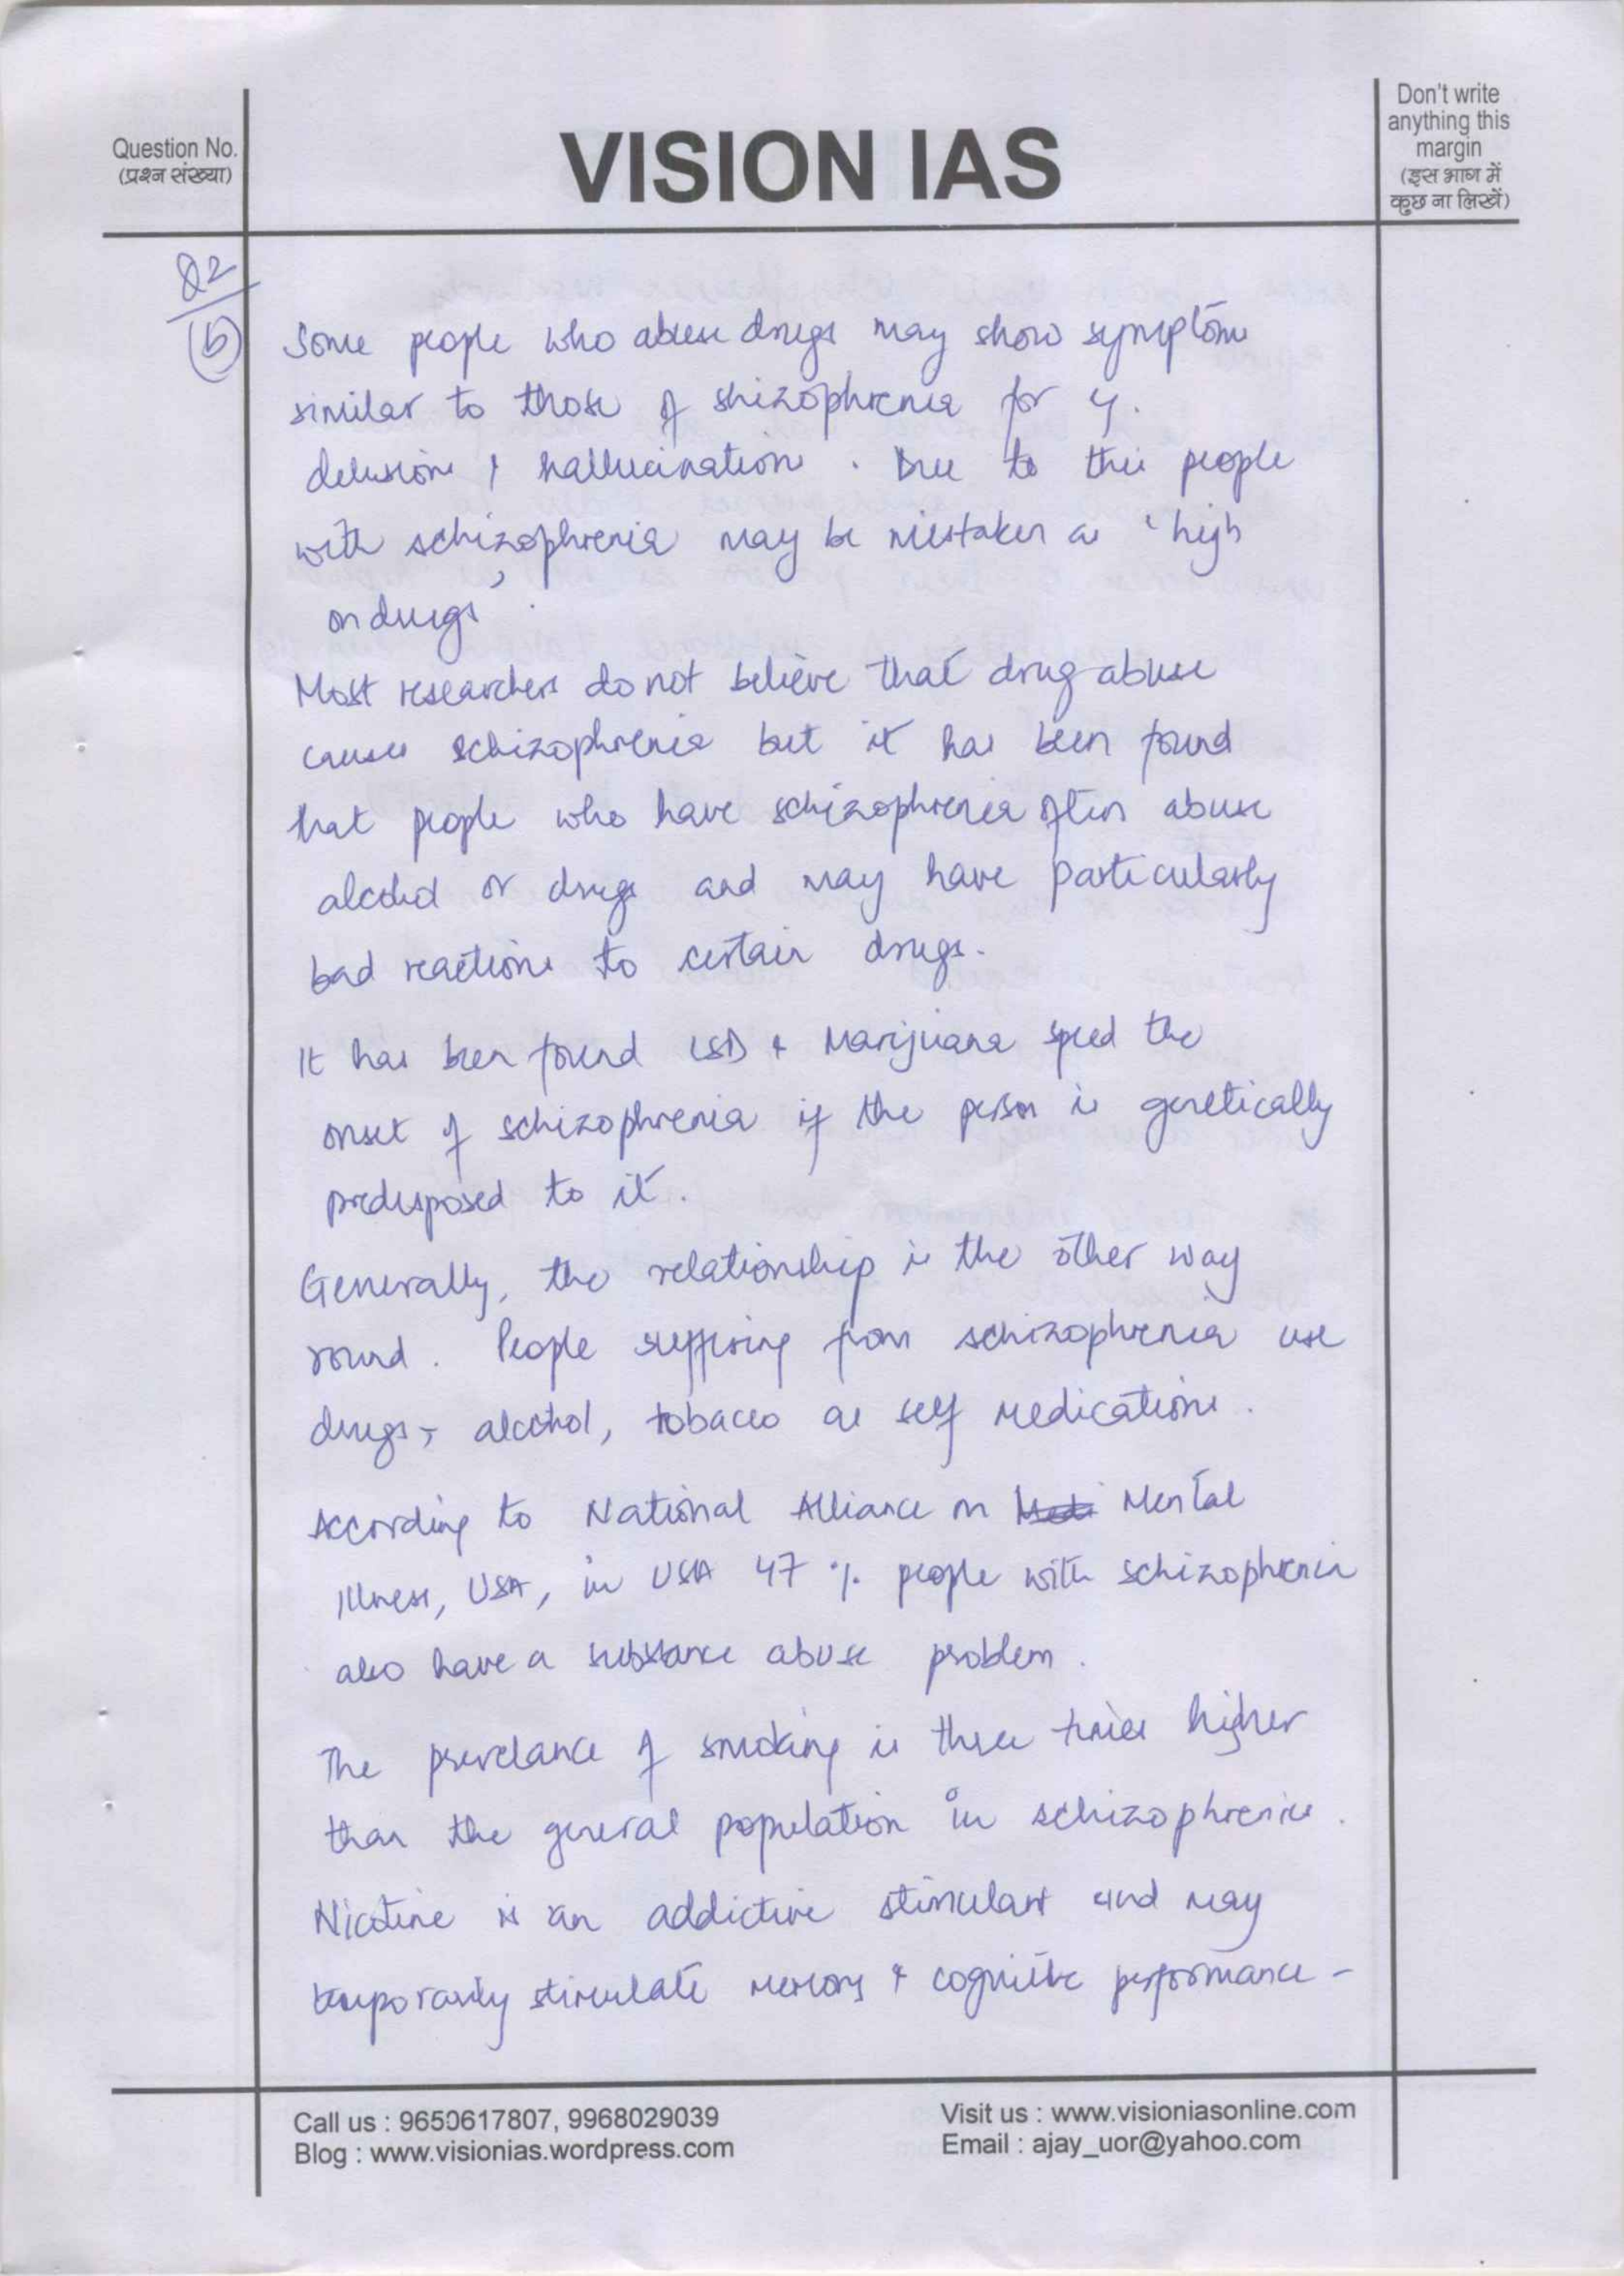 Question No.
(प्रश्न संख्या)
VISION IAS
Don't write
anything this
margin
(इस भाग में
कुछ ना लिखें)
Q2
(b)
Some people who abuse drugs may show symptoms
similar to those of shizophrenia for
delusions & hallucinations. Due to this people
with schizophrenia may be mistaken as 'high
on drugs'.
Most researchers do not believe that drug abuse
causes schizophrenia but it has been found
that people who have schizophrenia often abuse
alcohol or drugs and may have particularly
bad reactions to certain drugs.
It has been found LSD & Marijuana speed the
onset of schizophrenia if the person is genetically
predisposed to it.
Generally, the relationship is the other way
round. People suffering from schizophrenia use
drugs, alcohol, tobacco as self medications.
According to National Alliance on Medi Mental
Illness, USA, in USA 47 % people with schizophrenia
also have a substance abuse problem.
The prevelance of smoking is three times higher
than the general population in schizophrenics.
Nicotine is an addictive stimulant and may
temporarily stimulate memory & cognitive performance -
Call us : 9650617807, 9968029039
Blog : www.visionias.wordpress.com
Visit us : www.visioniasonline.com
Email : ajay_uor@yahoo.com